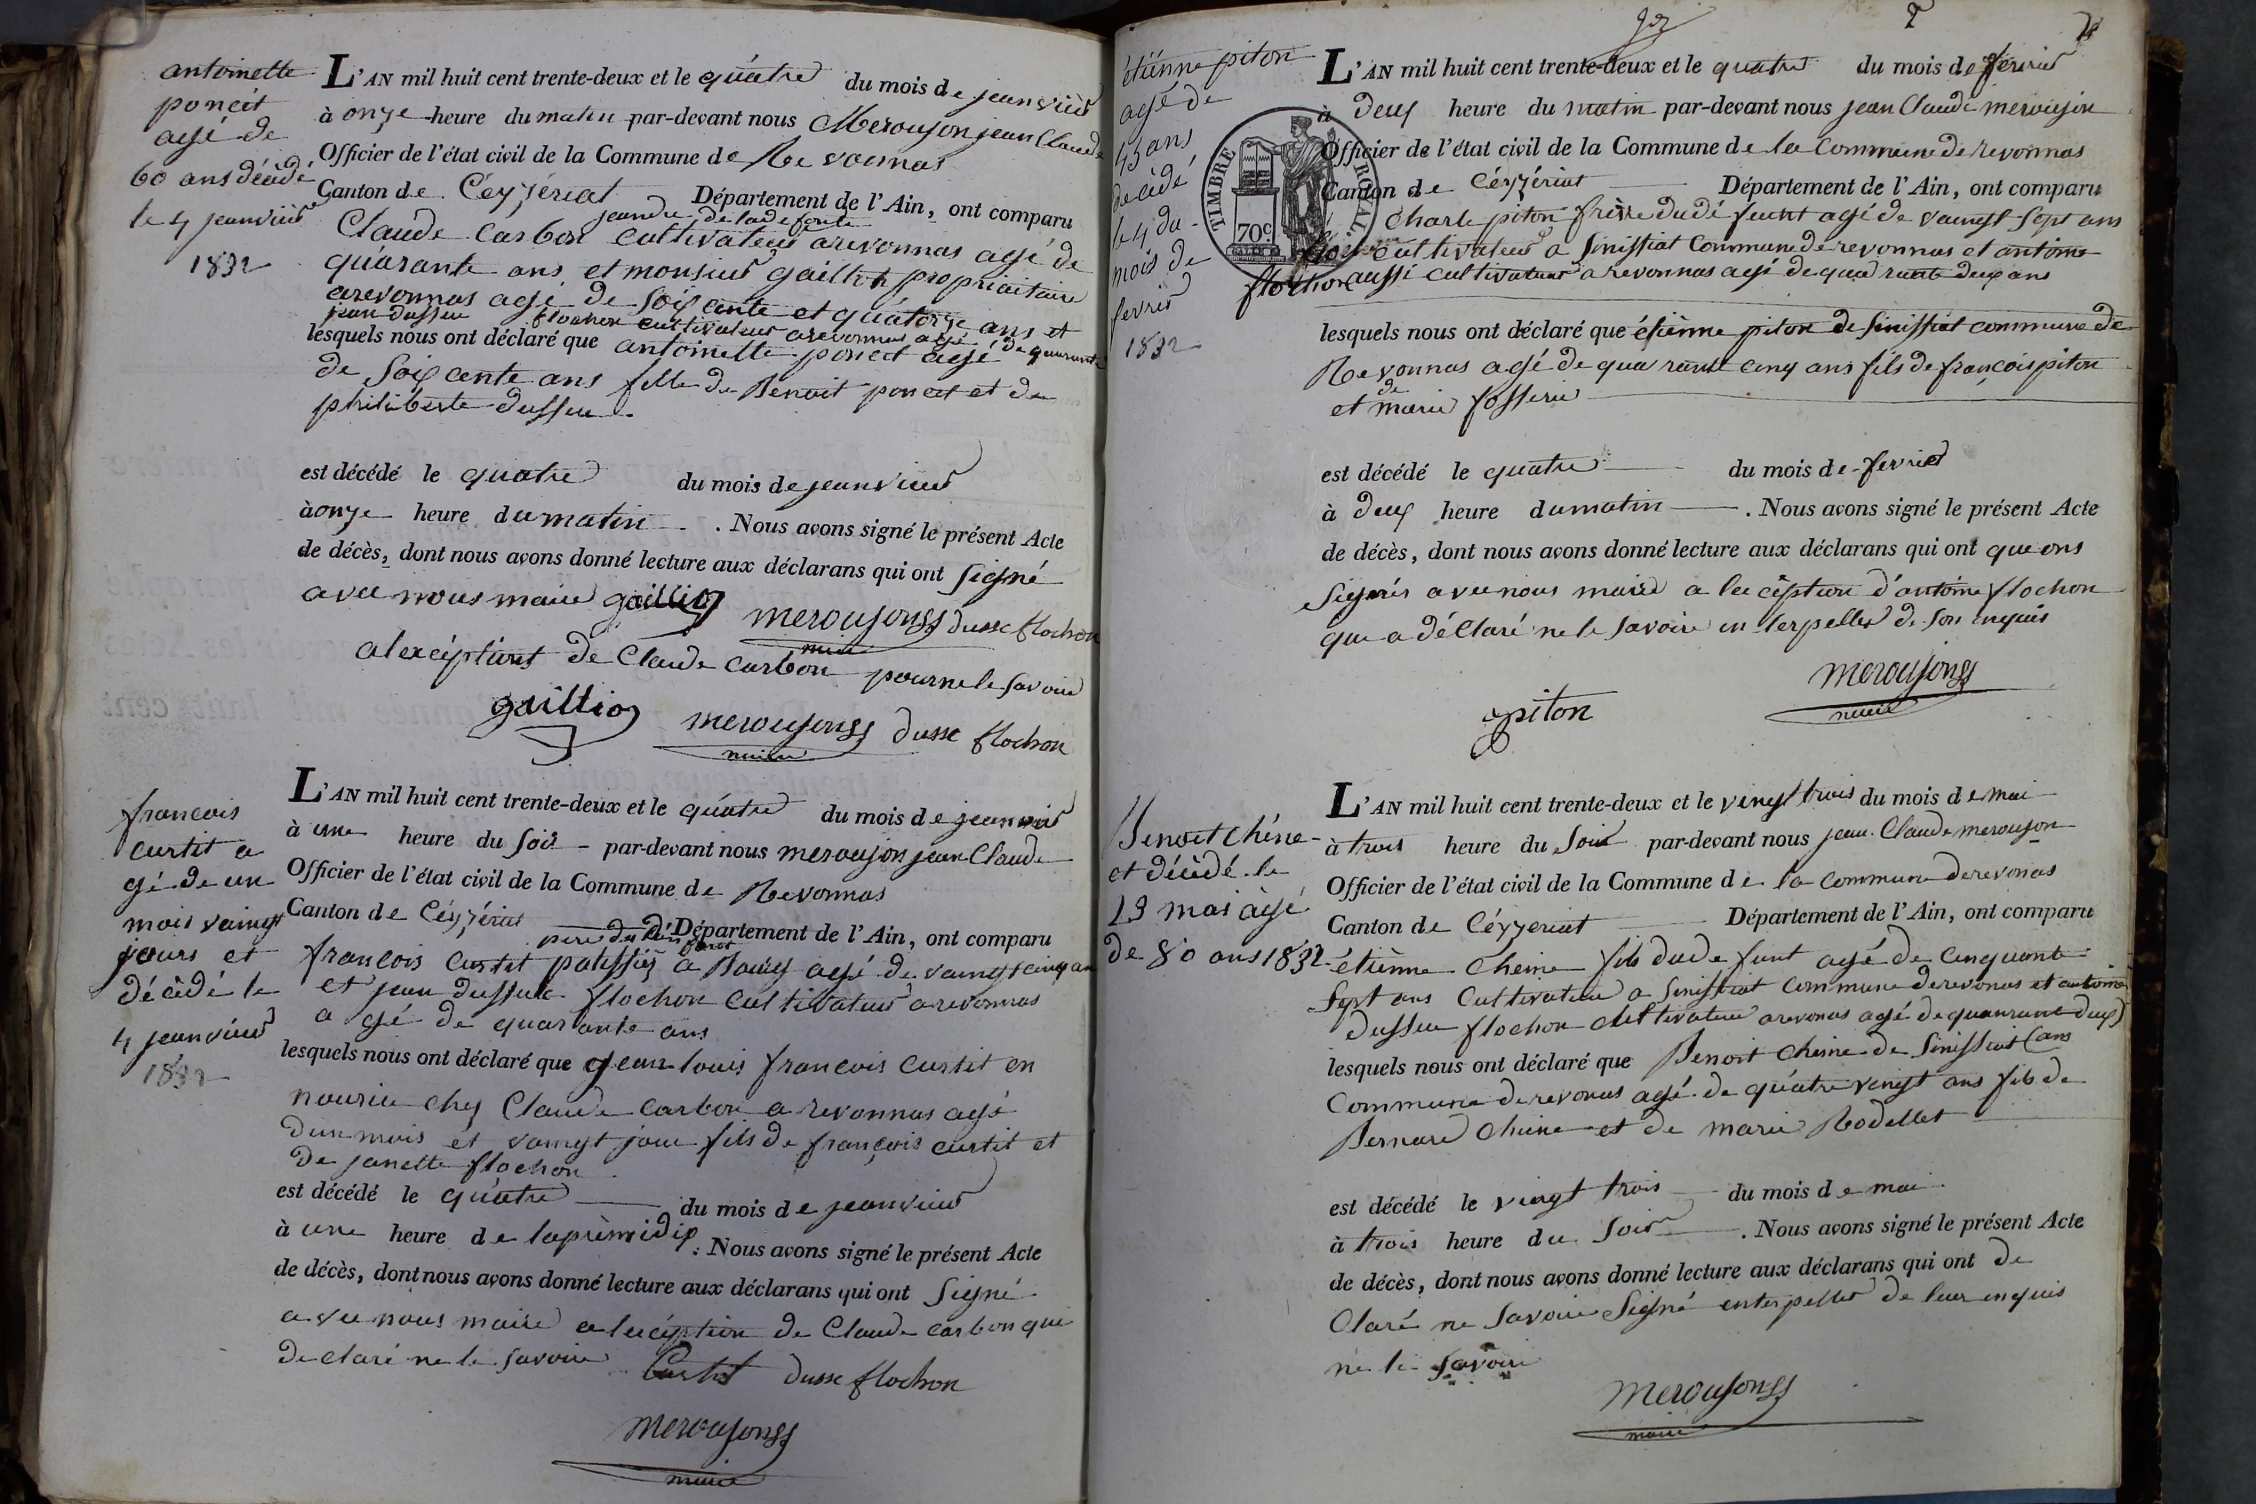 antoinette
poncet
agé de
60 ans décédé
le 4 jeanvier
1832
L'AN mil huit cent trente-deux et le quatre du mois de jeanvier
à onze heure du matin par-devant nous Merouson jean Claude
Officier de l'état civil de la Commune de Revonnas
Canton de Céyzériat Département de l'Ain, ont comparu
jeandre de la defonte
Claude Carbon cultivateur a revonnas agé de
quarante ans et monsieur gaillion propriaitaire
a revonnas agé de soixcente et quatorze ans et
jean dusseu flochon cultivateur a revonnas agé de quarante
lesquels nous ont déclaré que antoinette poncet agé
de soixcente ans fille de Benoit poncet et de
philiberte dusseu
est décédé le quatre du mois de jeanvier
à onze heure du matin . Nous avons signé le présent Acte
de décès, dont nous avons donné lecture aux déclarans qui ont signé
avec nous maire gaillion merousongs dusse flochon
maire
alexcéptions de Claude carbon pour ne le savoir
gaillion merousongs dusse flochon
maire
francois
curtit a
gé de un
mois vaingt
jours et
décédé le
4 jeanvier
1832
L'AN mil huit cent trente-deux et le quatre du mois de jeanvier
à une heure du soir par-devant nous merouson jean Claude
Officier de l'état civil de la Commune de Revonnas
Canton de Céyzériat Département de l'Ain, ont comparu
pere du défunt
francois curtit patissier a Bourg agé de vaingt cinq an
et jean dusseu flochon cultivateur a revonnas
a gé de quarante ans
lesquels nous ont déclaré que jean louis francois curtit en
nourice chez Claude carbon a revonnas agé
dun mois et vaingt jour fils de françois curtit et
de janette flochon
est décédé le quatre du mois de jeanvier
à une heure de laprèmidix . Nous avons signé le présent Acte
de décès, dont nous avons donné lecture aux déclarans qui ont signé
avec nous maire a lexcéption de Claude carbon que
declaré ne le savoir Curtit dusse flochon
merousongs
maire
étiènne piton
agé de
45 ans
decédé
le 4 du
mois de
fevrier
1832
TIMBRE ROYAL.
70c
L'AN mil huit cent trente-deux et le quatre du mois de février
à deux heure du matin par-devant nous jean Claude merouson
Officier de l'état civil de la Commune de la Commune de revonnas
Canton de Céyzériat Département de l'Ain, ont comparu
Charle piton frère du dé funt agé de vaingt sept ans
cultivateur a Sinissiat Commune de revonnas et antoine
flochon aussi cultivateur a revonnas agé de quarante deux ans
lesquels nous ont déclaré que étiènne piton de Sinissiat commune de
Revonnas agé de quarante cinq ans fils de françois piton
et de marie fosserie
est décédé le quatre du mois de fevrier
à deux heure du matin . Nous avons signé le présent Acte
de décès, dont nous avons donné lecture aux déclarans qui ont que ons
signés avec nous maire a lexcéption d'antoine flochon
que a déclaré ne le savoir en terpeller de son enquis
merousongs
piton maire
Benoit chéne
et décédé le
23 mai agé
de 80 ans 1832
L'AN mil huit cent trente-deux et le vingt trois du mois de mai
à trois heure du soir par-devant nous jean Claude merouson
Officier de l'état civil de la Commune de la commune de revonas
Canton de Céyzeriat Département de l'Ain, ont comparu
étiènne Cheine fils du de funt agé de cinquante
sept ans Cultivateur a Sinissiat Commune de revonas et antoine
dusseu flochon cultivateur a revonas agé de quaurante deux
ans
lesquels nous ont déclaré que Benoit Cheine de Sinissiat
Commune de revonas agé de quatre vingt ans fils de
Bernard Cheine et de marie Rodellet
est décédé le vingt trois du mois de mai
à trois heure du soir . Nous avons signé le présent Acte
de décès, dont nous avons donné lecture aux déclarans qui ont de
claré ne savoir signé enterpeller de leur enquis
ne le savoir
merousongs
maire